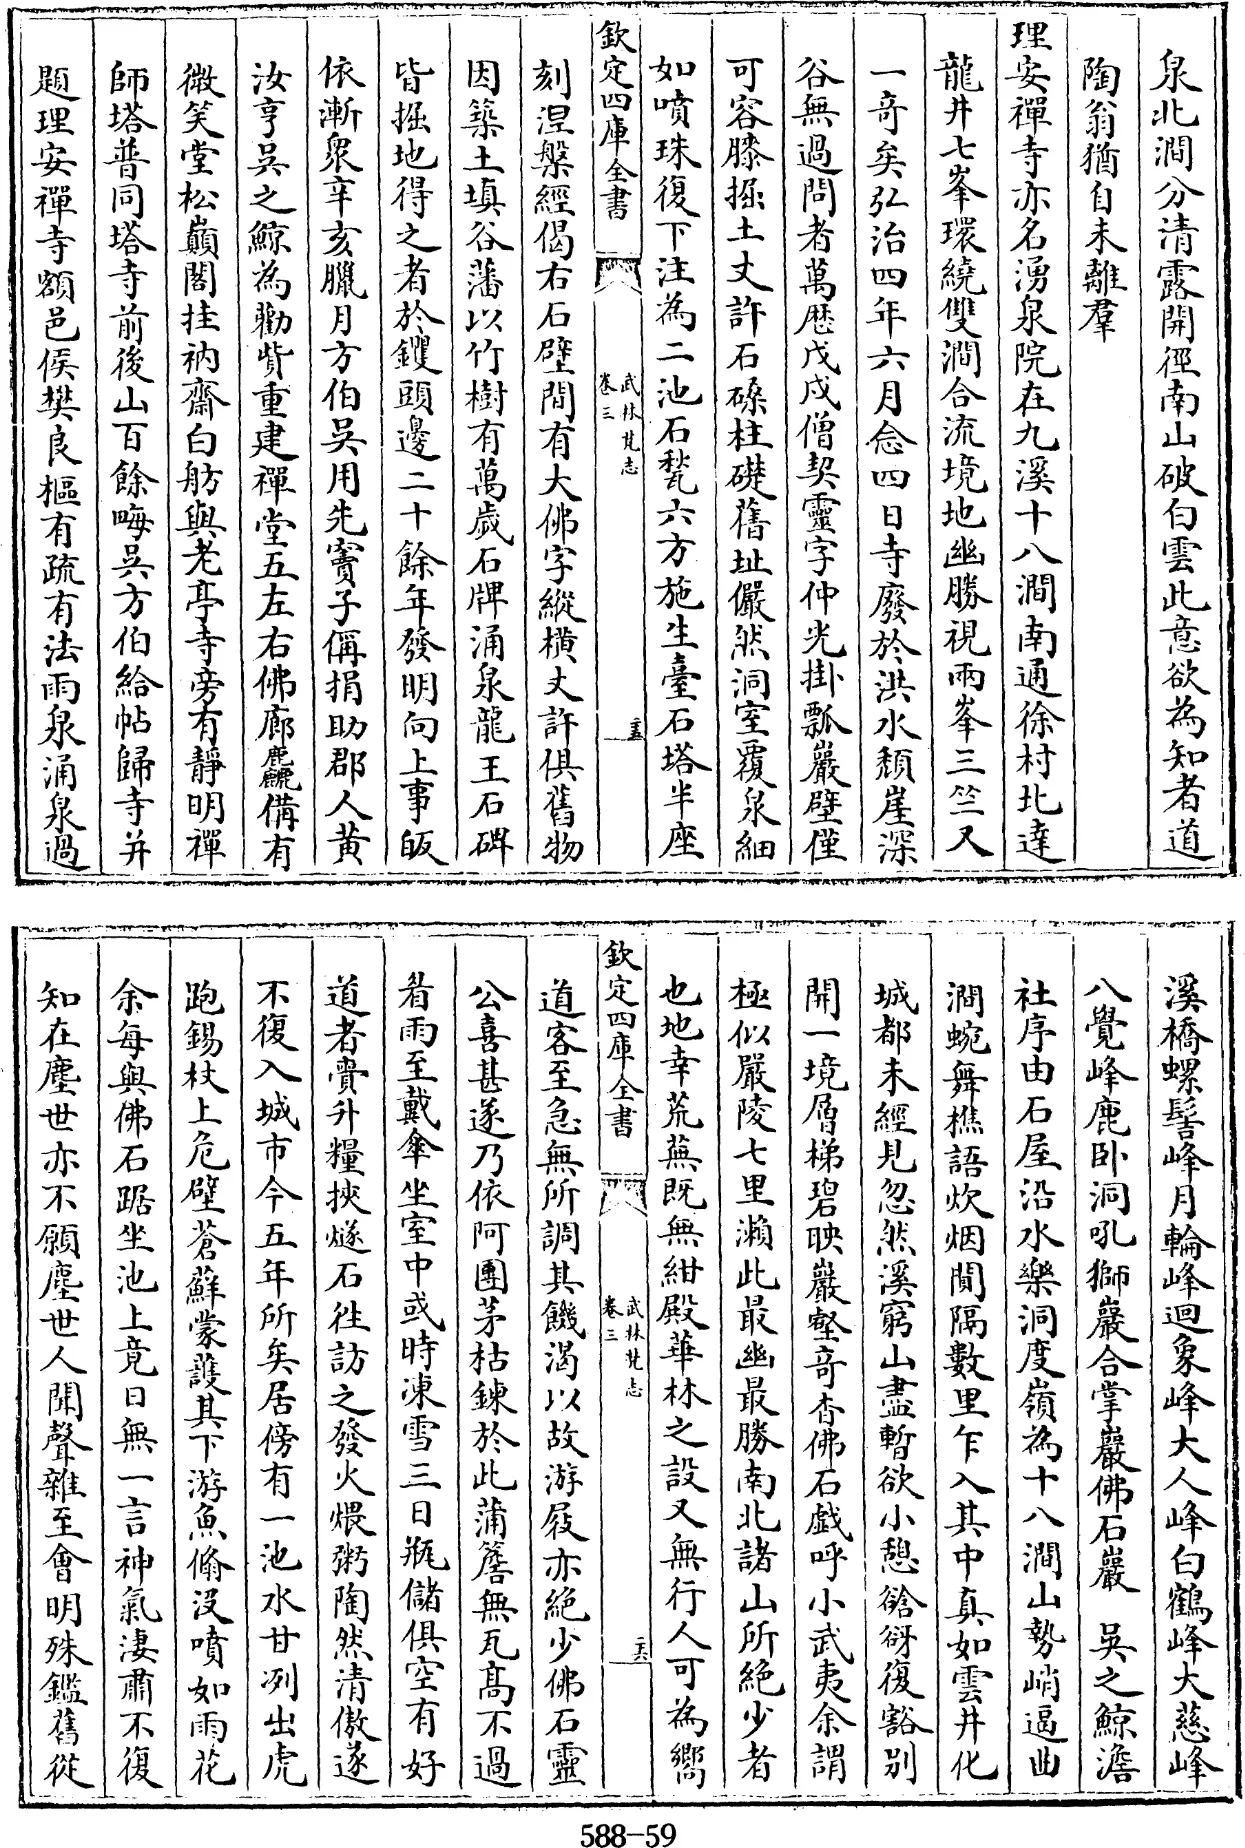 泉北澗分清露開徑南山破白雲此意欲為知者道
陶翁猶自未離羣
理安禪寺亦名湧泉院在九溪十八澗南通徐村北達
龍井七峯環繞雙澗合流境地幽勝視兩峯三竺又
一奇矣弘治四年六月念四日寺廢於洪水頽崖深
谷無過問者萬歴戊戌僧契靈字仲光掛瓢巖壁僅
可容膝掘土丈許石磉柱礎舊址儼然洞室覆泉細
如噴珠復下注為二池石甃六方施生臺石塔半座
欽定四庫全書
武林梵志
卷三
二五
刻涅槃經偈右石壁間有大佛字縱横丈許俱舊物
因築土填谷藩以竹樹有萬歲石牌涌泉龍王石碑
皆掘地得之者於钁頭邊二十餘年發明向上事皈
依漸衆辛亥臘月方伯吳用先竇子偁捐助郡人黄
汝亨吳之鯨為勸貲重建禪堂五左右佛廊麤備有
微笑堂松巔閣挂衲齋白舫與老亭寺旁有靜明禪
師塔普同塔寺前後山百餘畮吳方伯給帖歸寺并
題理安禪寺額邑侯樊良樞有疏有法雨泉涌泉過
溪橋螺髻峰月輪峰迴象峰大人峰白鶴峰大慈峰
八覺峰鹿卧洞吼獅巖合掌巖佛石巖 吳之鯨澹
社序由石屋沿水樂洞度嶺為十八澗山勢峭逼曲
澗蜿舞樵語炊烟間隔數里乍入其中真如雲井化
城都未經見忽然溪窮山盡暫欲小憩谽谺復豁别
開一境層梯碧映巖壑奇杳佛石戲呼小武夷余謂
極似嚴陵七里瀬此最幽最勝南北諸山所絶少者
也地幸荒蕪既無紺殿華林之設又無行人可為嚮
欽定四庫全書
武林梵志
卷三
二六
道客至急無所調其饑渴以故游屐亦絶少佛石靈
公喜甚遂乃依阿團茅枯鍊於此蒲簷無瓦髙不過
眉雨至戴傘坐室中或時凍雪三日瓶儲俱空有好
道者賫升糧挾燧石徃訪之發火煨粥陶然清傲遂
不復入城市今五年所矣居傍有一池水甘冽出虎
跑錫杖上危壁蒼蘚蒙護其下游魚偹没噴如雨花
余每與佛石踞坐池上竟日無一言神氣淒肅不復
知在塵世亦不願塵世人聞聲雜至會明殊鑑舊從
588-59